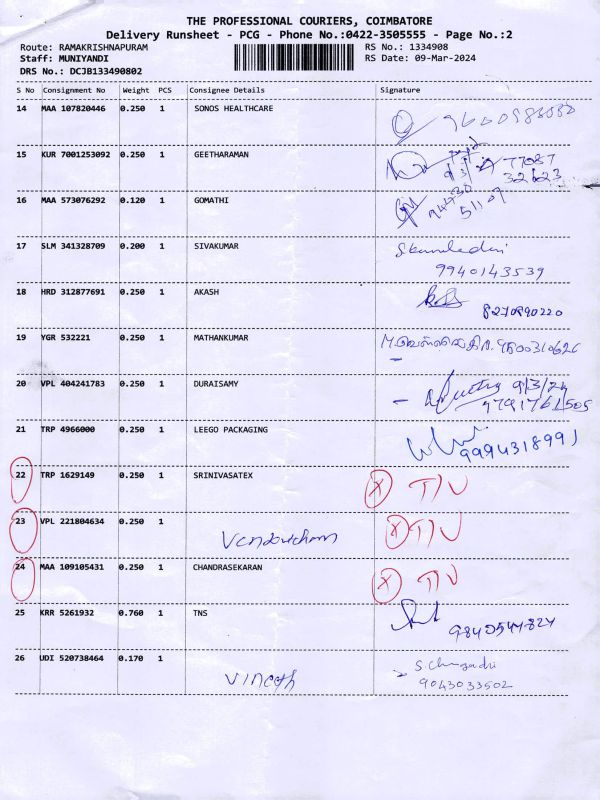 THE PROFESSIONAL COURIERS, COIMBATORE
Delivery Runsheet - PCG - Phone No.:0422-3505555 - Page No.:2
Route: RAMAKRISHNAPURAM RS No.: 1334908
Staff: MUNIYANDI RS Date: 09-Mar-2024
DRS No.: DCJB133490802
S No Consignment No Weight PCS Consignee Details Signature
14 MAA 107820446 0.250 1 SONOS HEALTHCARE
15 KUR 7001253092 0.250 1 GEETHARAMAN
9/3/24 77087
32623
16 MAA 573076292 0.120 1 GOMATHI
94430
51107
17 SLM 341328709 0.200 1 SIVAKUMAR
9940143539
18 HRD 312877691 0.250 1 AKASH
8270890220
19 YGR 532221 0.250 1 MATHANKUMAR 9800310626
20 VPL 404241783 0.250 1 DURAISAMY 9/3/24
9791761505
21 TRP 4966000 0.250 1 LEEGO PACKAGING
9994318991
22 TRP 1629149 0.250 1 SRINIVASATEX X T/V
23 VPL 221804634 0.250 1 X T/V
24 MAA 109105431 0.250 1 CHANDRASEKARAN X T/V
25 KRR 5261932 0.760 1 TNS
9840547827
26 UDI 520738464 0.170 1
Vineeth 9043033502